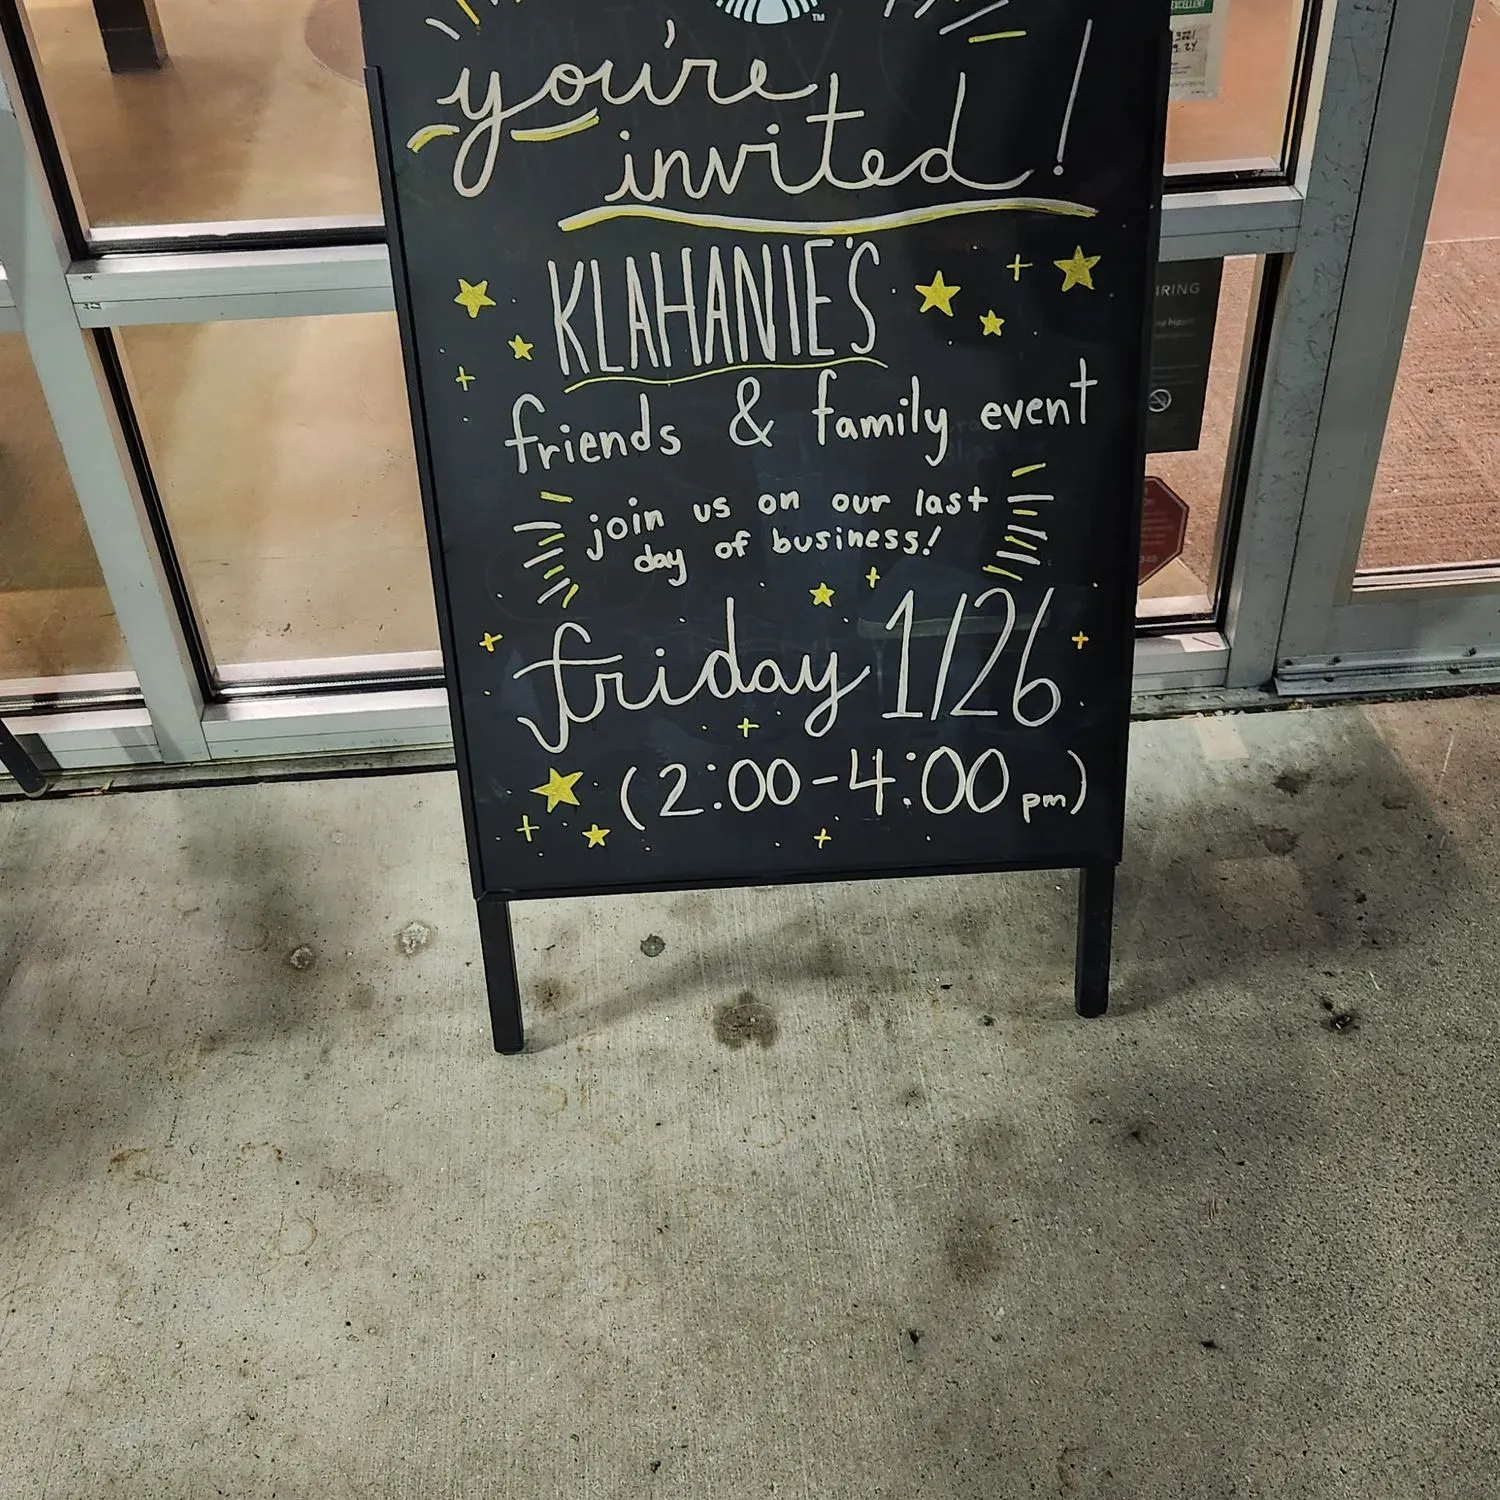 ™
EXCELLENT
you're
invited!
KLAHANIE'S
friends & family event
join us on our last
day of business!
friday 1/26
(2:00-4:00 pm)
IRING